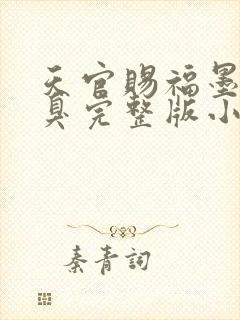 天官赐福墨
臭完整版小
秦青詞